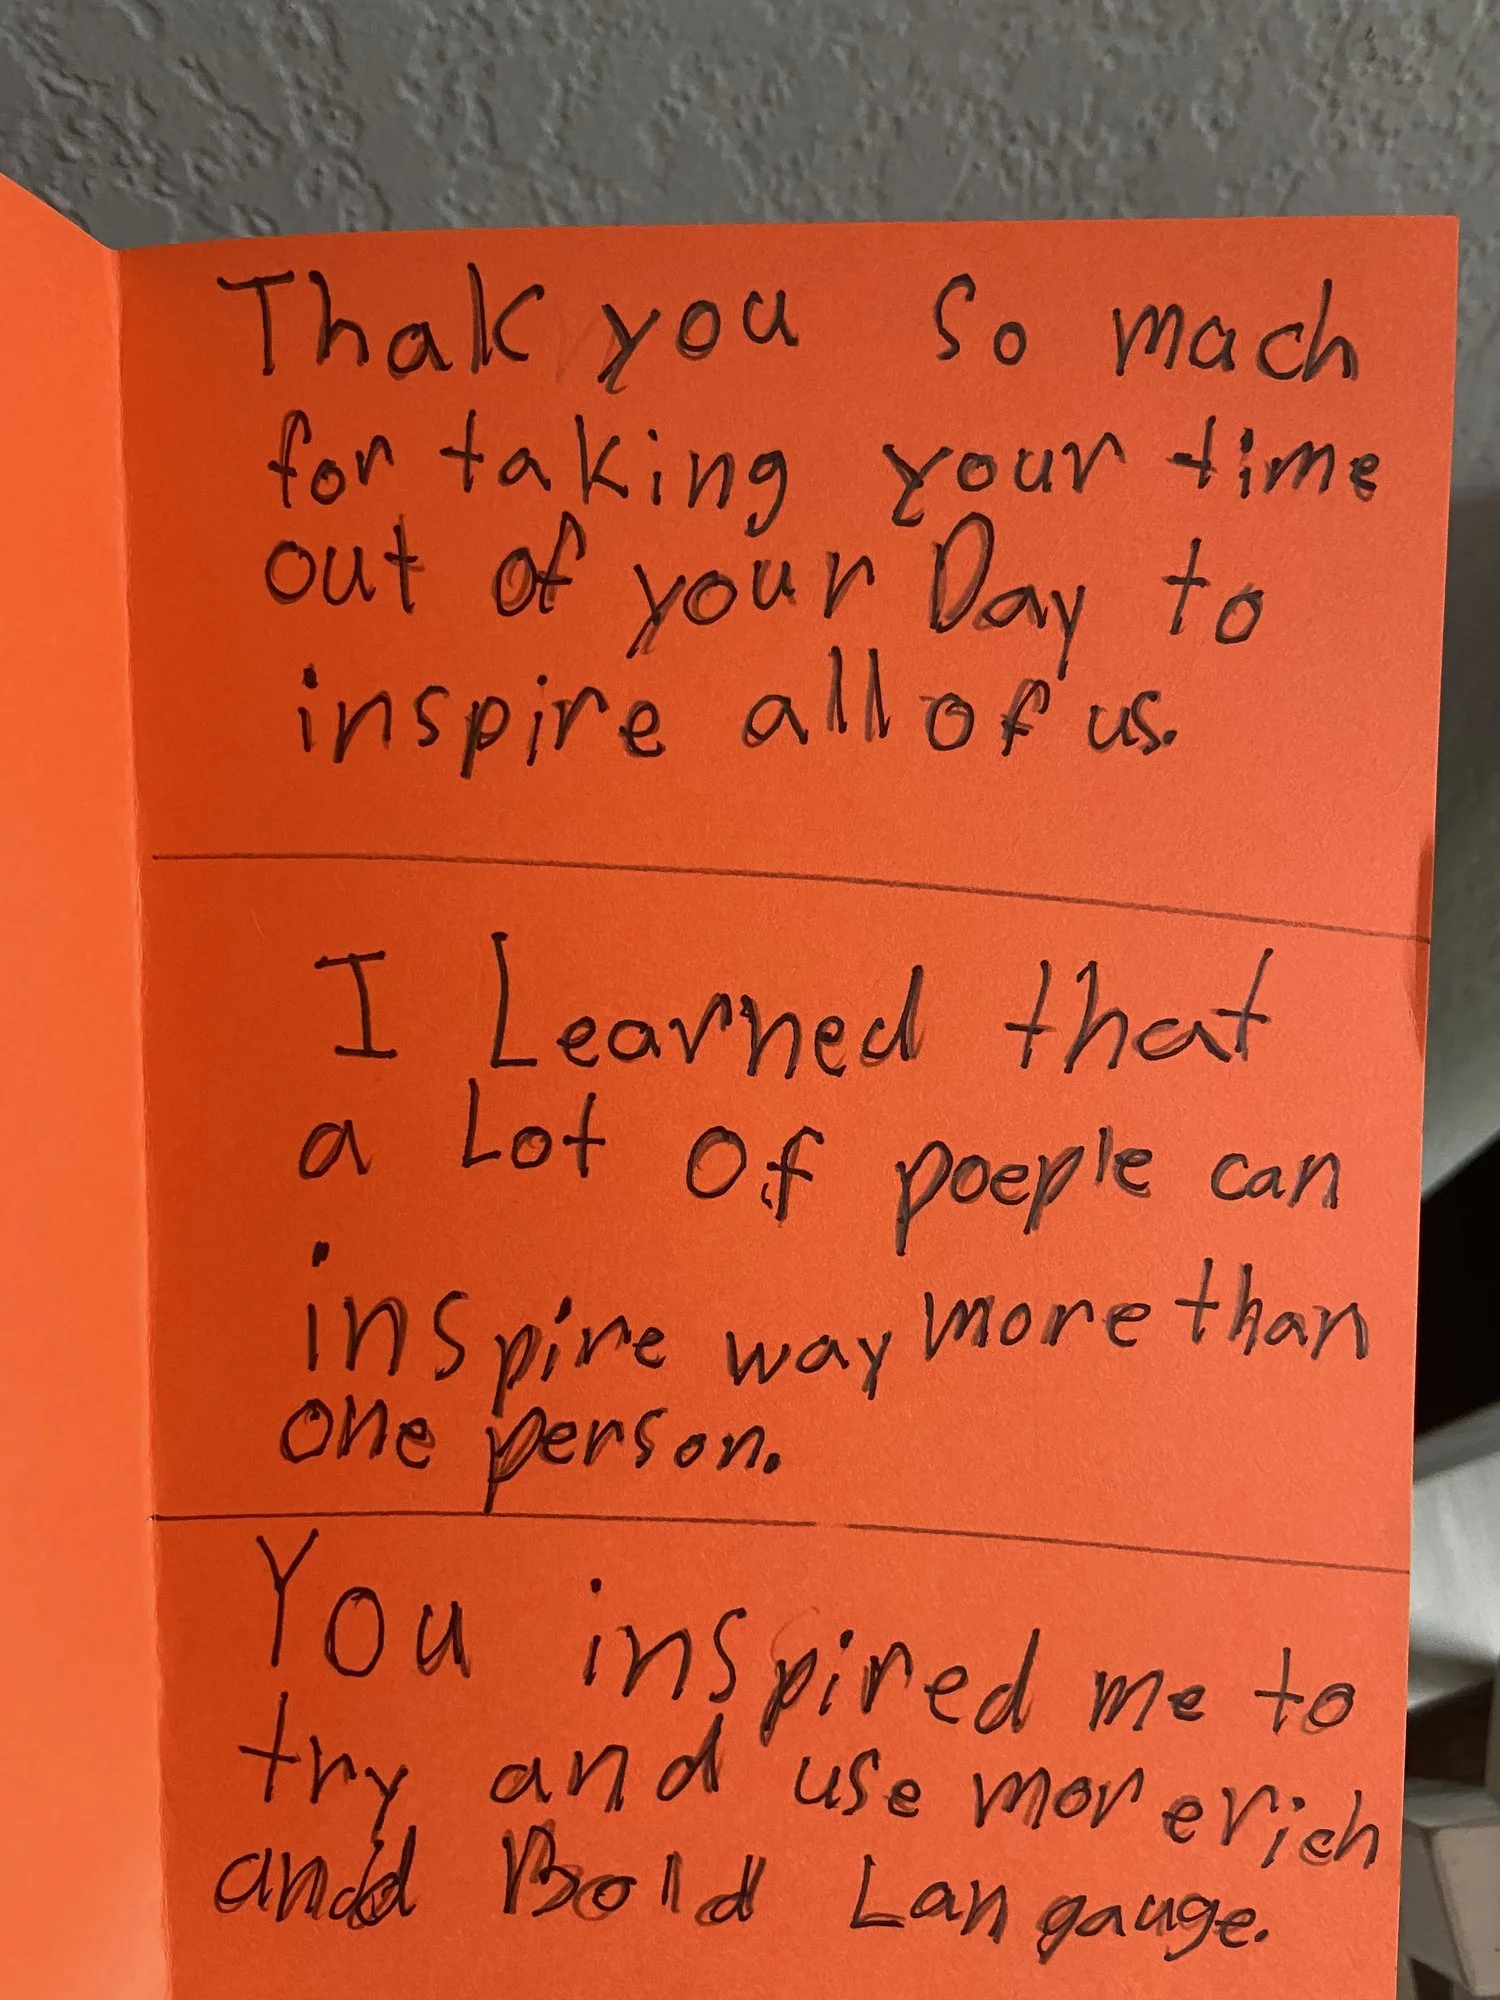 Thak you so mach
for taking your time
out of your Day to
inspire all of us.
I Learned that
a Lot Of poeple can
inspire way more than
one person.
You inspired me to
try and use mor erich
and Bold Langauge.